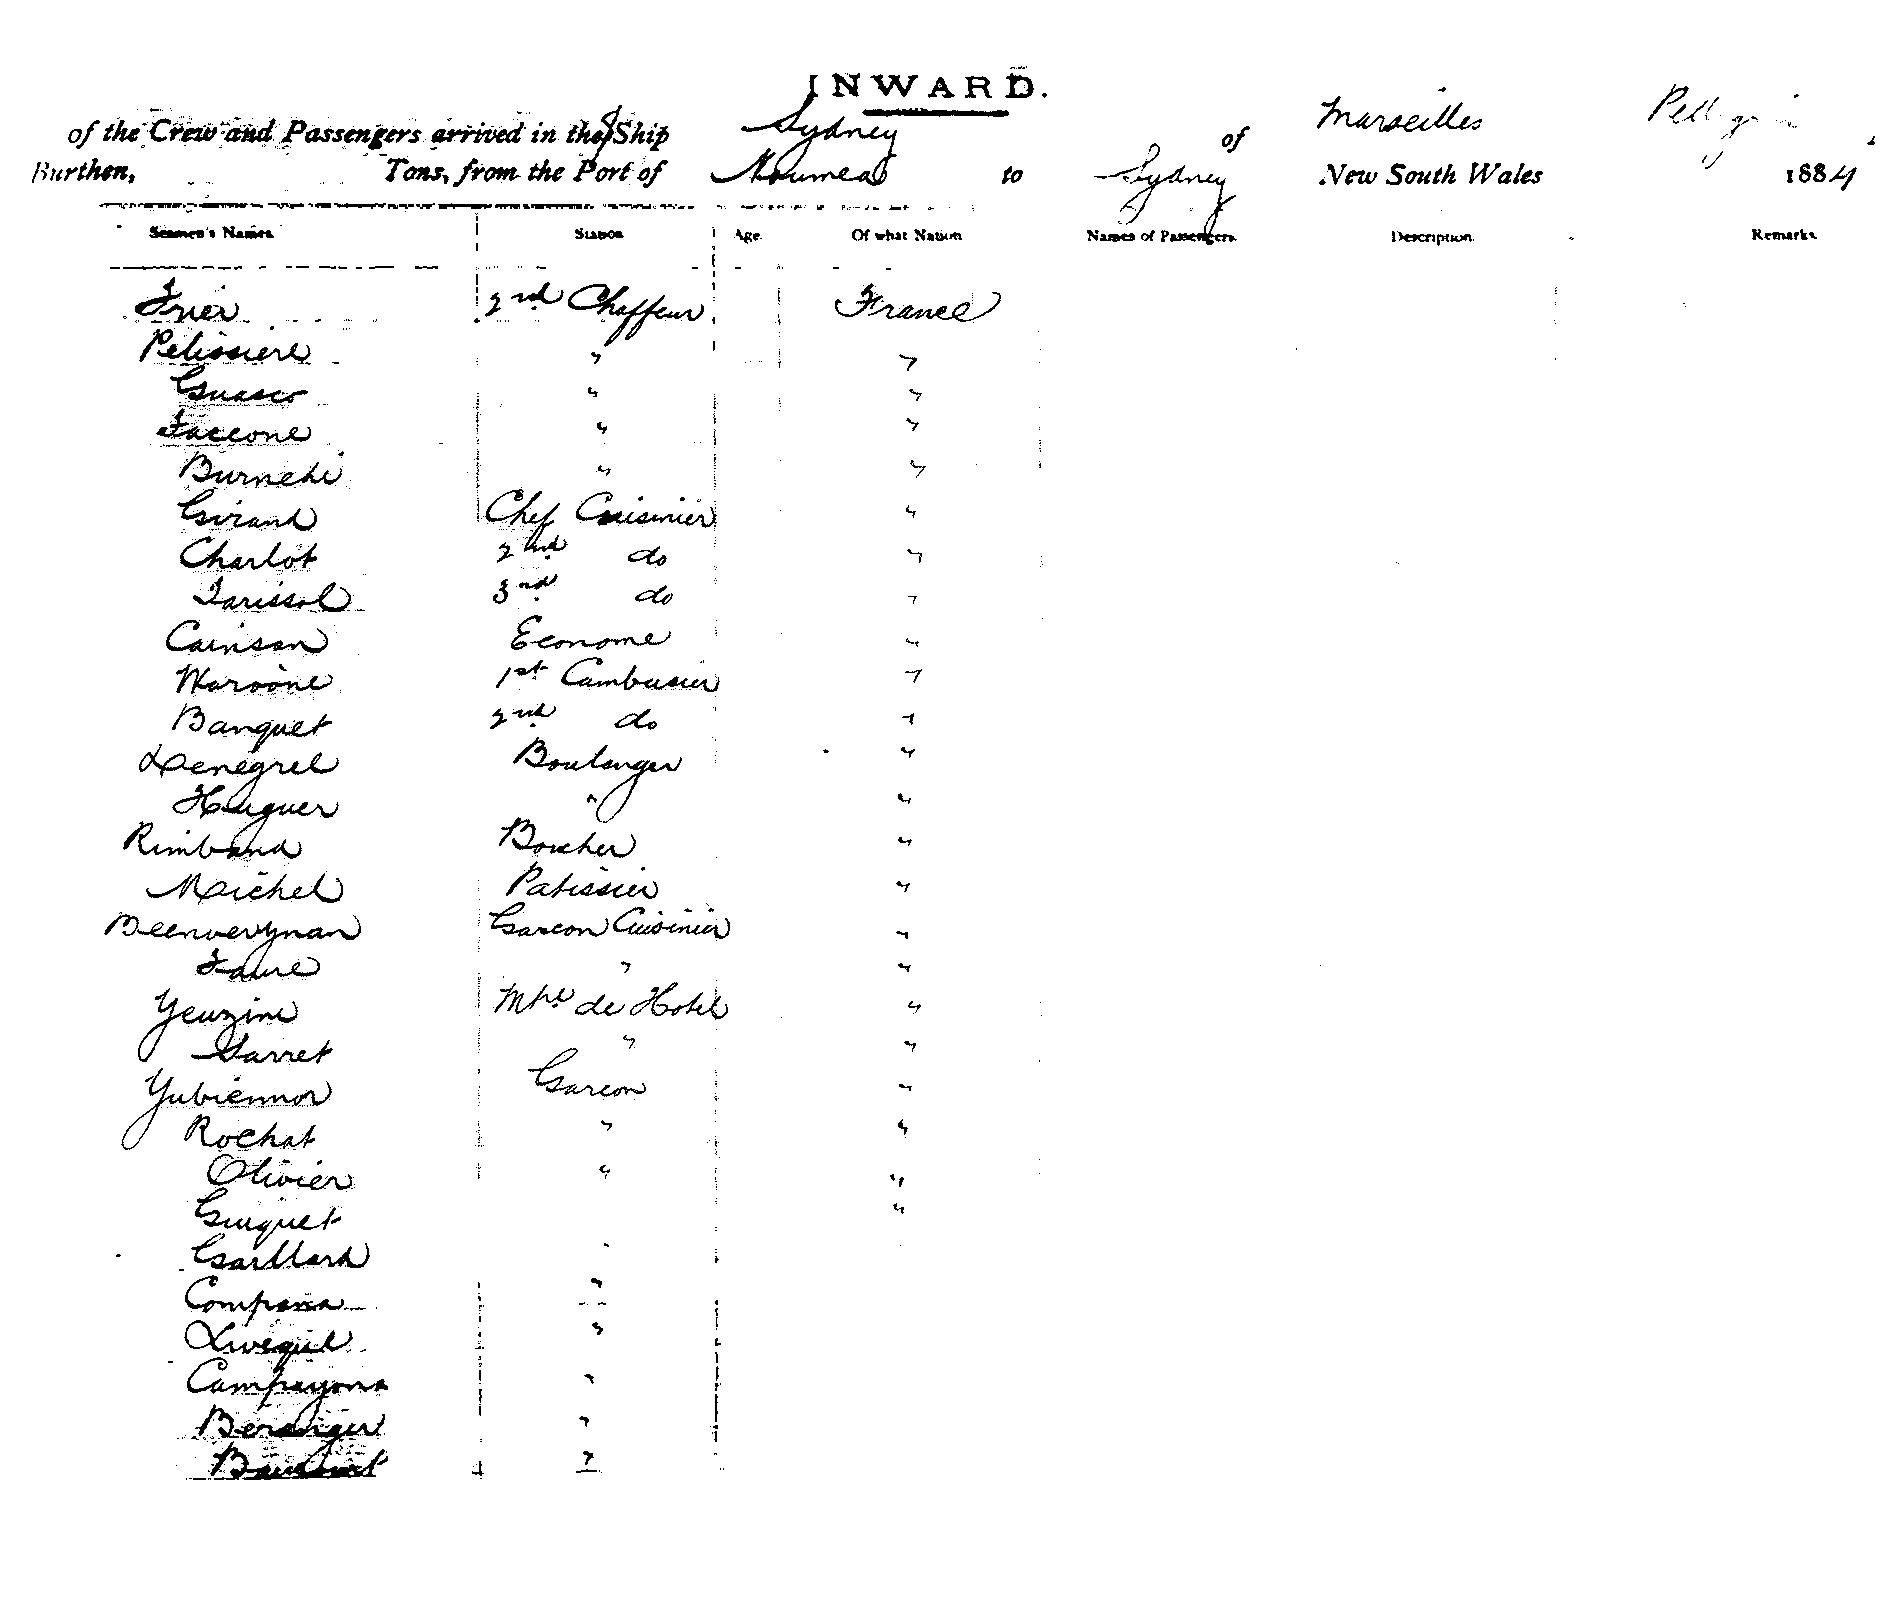 INWARD.
of the Crew and Passengers arrived in the S/Ship Sydney of Marseilles
Burthen, Tons, from the Port of Noumea to Sydney New South Wales 1884
Seamen's Names Station Age Of what Nation Names of Passengers. Description. Remarks.
2nd Chaffeur France
Pelissiere " "
Guasco " "
Faccone " "
Burnchi " "
Girand Chef Cuisinier "
Charlot 2nd do "
Tarissol 3rd do "
Cainson Econome "
Maroone 1st Cambusier "
Banquet 2nd do "
Denegrel Boulanger "
Huguer " "
Rimband Boucher "
Michel Patissier "
Garcon Cuisinier "
Faure " "
Yeuzini de Hotel "
Sarret " "
Yubiennor Garcon "
Rochat " "
Olivier " "
Guiguet "
Gaillard "
Compana "
"
Campayona "
Beranger "
"